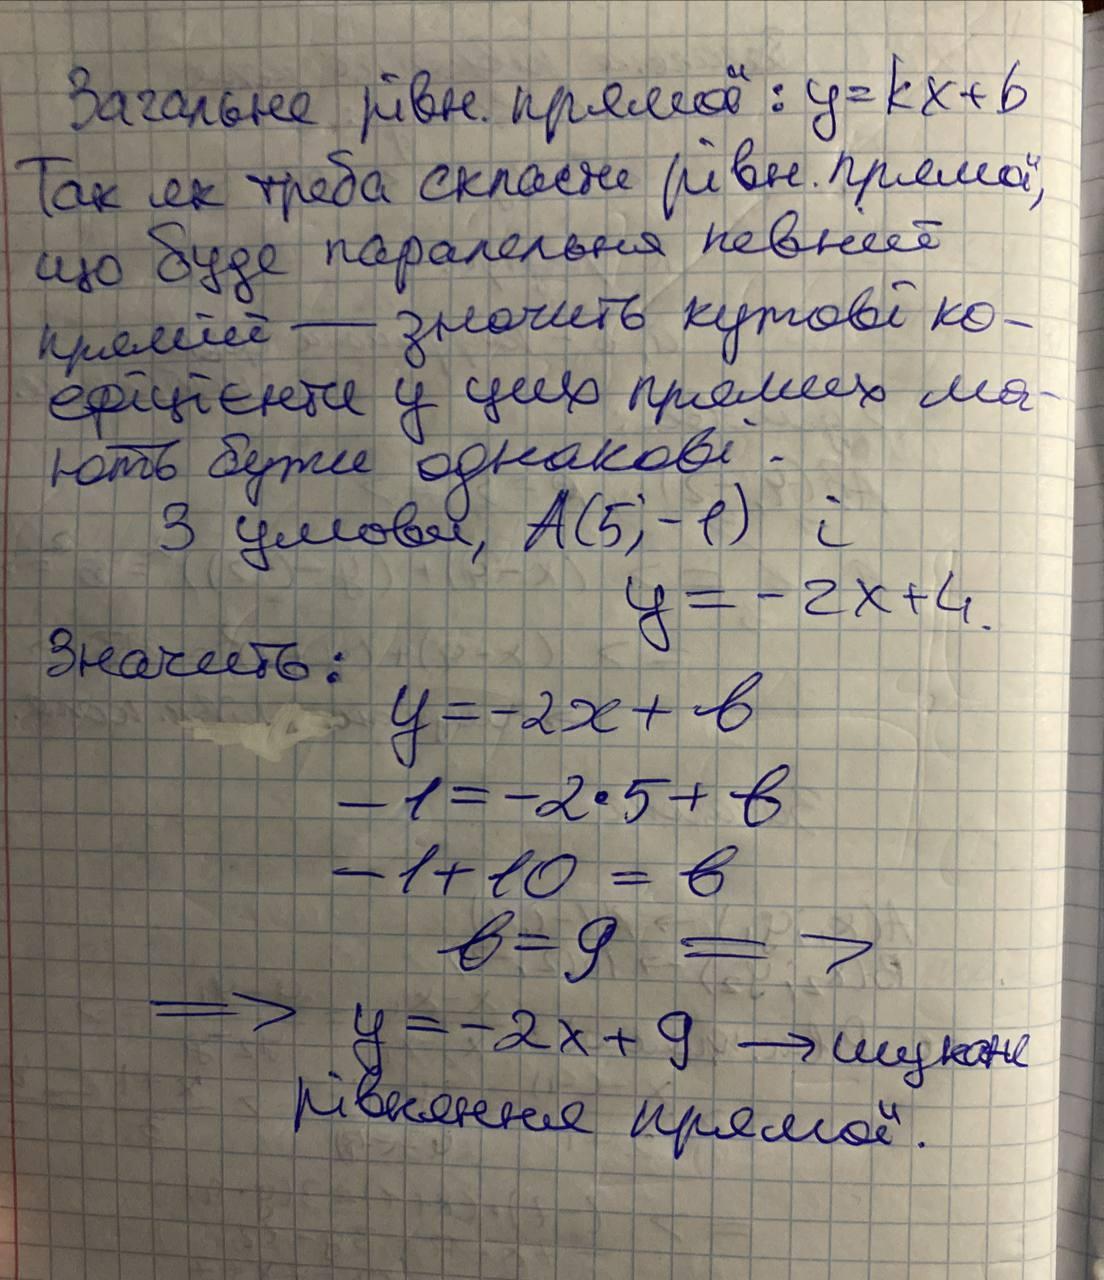 Загальне рівн. прямої: y=kx+b
Так як треба скласти рівн. прямої,
що буде паралельна певній
прямій — значить кутові ко-
ефіцієнти у цих прямих ма-
ють бути однакові.
З умови, A(5;-1) і
y=-2x+4.
Значить:
y=-2x+b
-1=-2•5+b
-1+10=b
b=9 =>
=> y=-2x+9 → шукане
рівняння прямої.